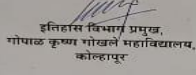 इतिहास विभाग प्रमुख,
गोपाळ कृष्ण गोखले महाविद्यालय,
कोल्हापूर